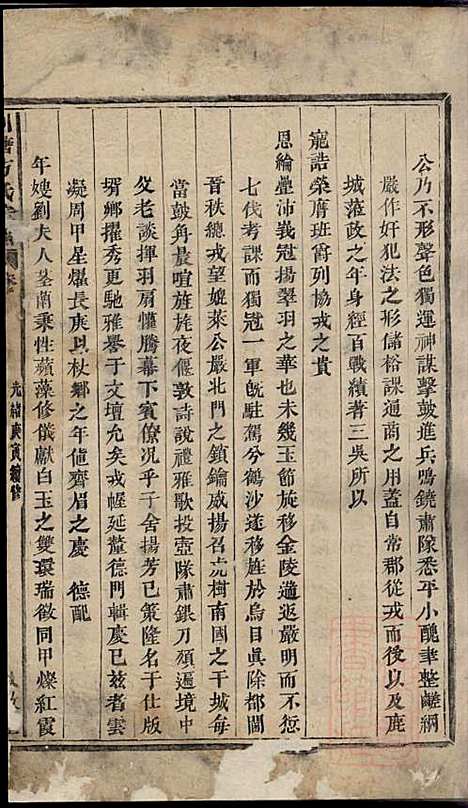 公乃不形聲色獨運神謀擊鼓進兵鳴鐃肅隊悉平小醜聿整鹺綱
嚴作奸犯法之形儲裕課通商之用蓋自常郡從戎而後以及鹿
城蒞政之年身經百戰績著三吳所以
寵誥榮膺班爵列協戎之貴
恩綸疊沛義冠揚翠羽之華也未幾玉節旋移金陵遄返嚴明而不愆
七伐考課而獨冠一軍旣駐駕兮鶴沙遂移旌於烏目眞除都閫
晉秩總戎望媲萊公嚴北門之鎖鑰威揚召虎樹南國之干城每
當鼓角晨喧旌旄夜偃敦詩說禮雅歌投壺隊肅銀刀頌遍境中
父老談揮羽扇懽騰幕下賓僚况乎子舍揚芬已策隆名于仕版
壻鄉擢秀更馳雅譽于文壇允矣戎幄延釐德門輯慶巳兹者雲
凝周甲星燿長庚以杖鄉之年値齊眉之慶 德配
年嫂劉夫人茎蘭秉性蘋藻修儀獻白玉之雙環瑞徵同甲燦紅霞
光緖庚寅續修